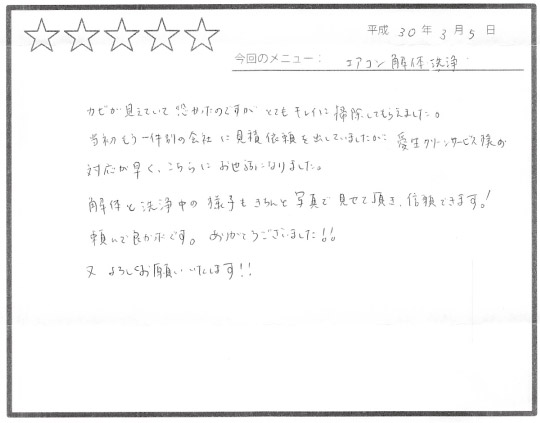 平成 30 年 3 月 5 日
今回のメニュー: エアコン解体洗浄
カビが見えていて 恐かったのですが とてもキレイに掃除してもらえました。
当初もう一件別の会社に見積依頼を出していましたが 愛生クリーンサービス様の
対応が早く、こちらにお世話になりました。
解体と洗浄中の様子もきちんと写真で見せて頂き、信頼できます!
頼んで良かったです。ありがとうございました!!
又 よろしくお願いいたします!!